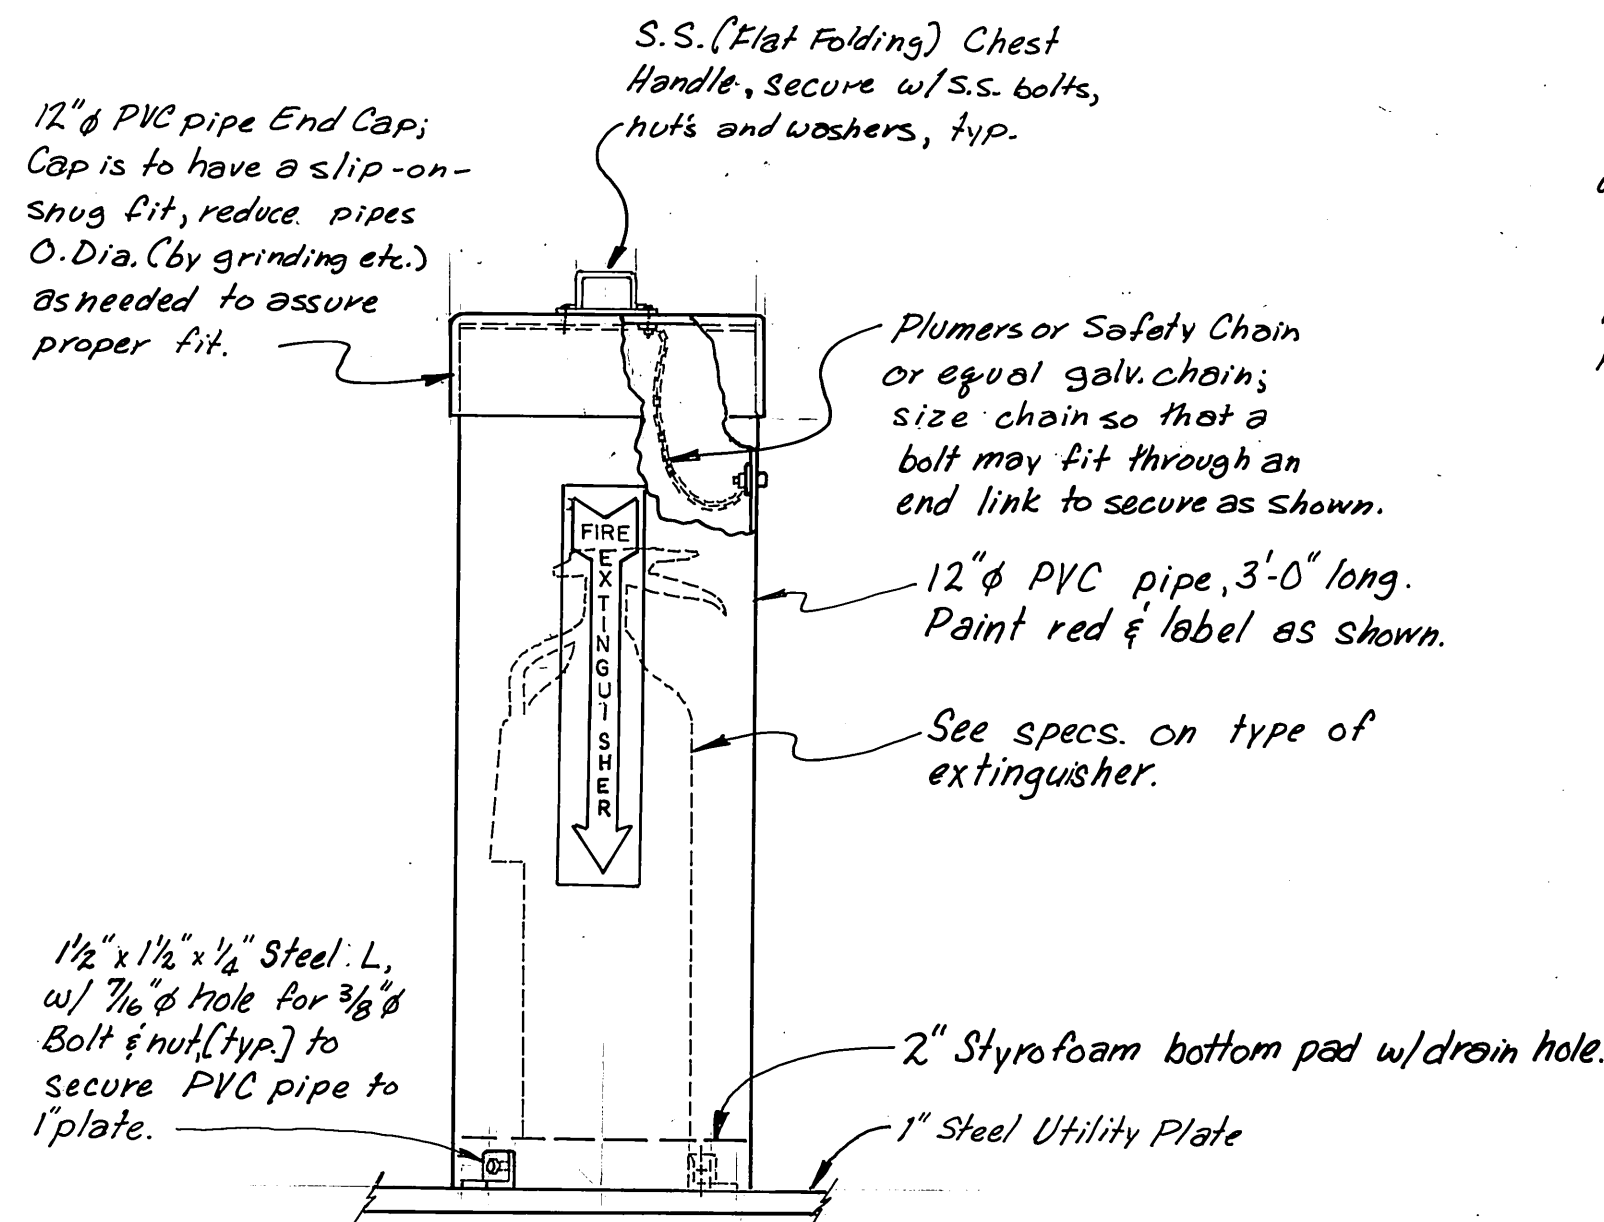 S.S. (Flat Folding) Chest
Handle, secure w/ S.S. bolts,
nut's and washers, typ.
12"ø PVC pipe End Cap;
Cap is to have a slip-on-
snug fit, reduce pipes
O.Dia. (by grinding etc.)
as needed to assure
proper fit.
Plumers or Safety Chain
or equal galv. chain;
size chain so that a
bolt may fit through an
end link to secure as shown.
12"ø PVC pipe, 3'-0" long.
Paint red & label as shown.
FIRE
EXTINGUISHER
See specs. on type of
extinguisher.
1½" x 1½" x ¼" Steel L,
w/ 7/16"ø hole for 3/8"ø
Bolt & nut, (typ.) to
secure PVC pipe to
1" plate.
2" Styrofoam bottom pad w/drain hole.
1" Steel Utility Plate